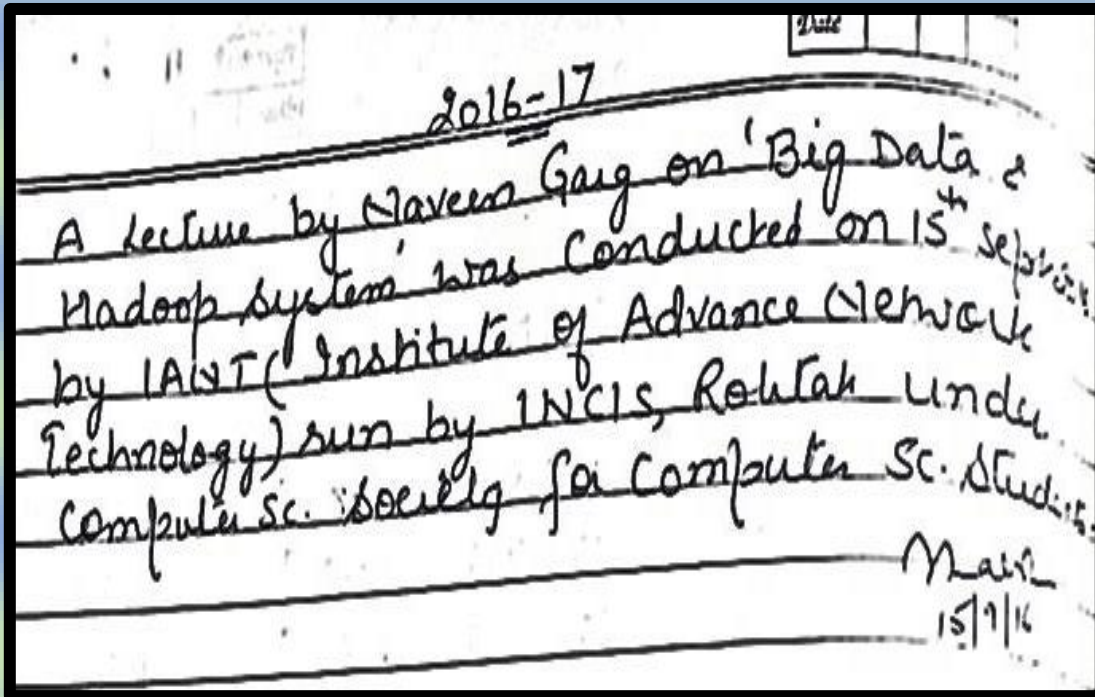 Date
2016-17
A Lecture by Naveen Garg on 'Big Data &
Hadoop System' was Conducted on 15th
by IANT (Institute of Advance Network
Technology) run by INCIS, Rohtak Under
Computer Sc. Society for Computer Sc.
15/9/16